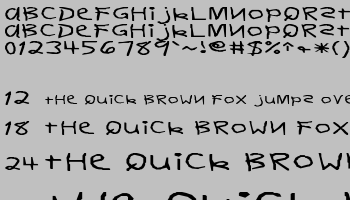 aBCDeFGHijkLMNOPQRSt
aBCDeFGHijkLMNOPQRSt
0123456789`~!@#$%^&*()
12 tHe QuiCk BROWN FOX juMPS OVe
18 tHe QuiCk BROWN FOX
24 tHe QuiCk BROWN